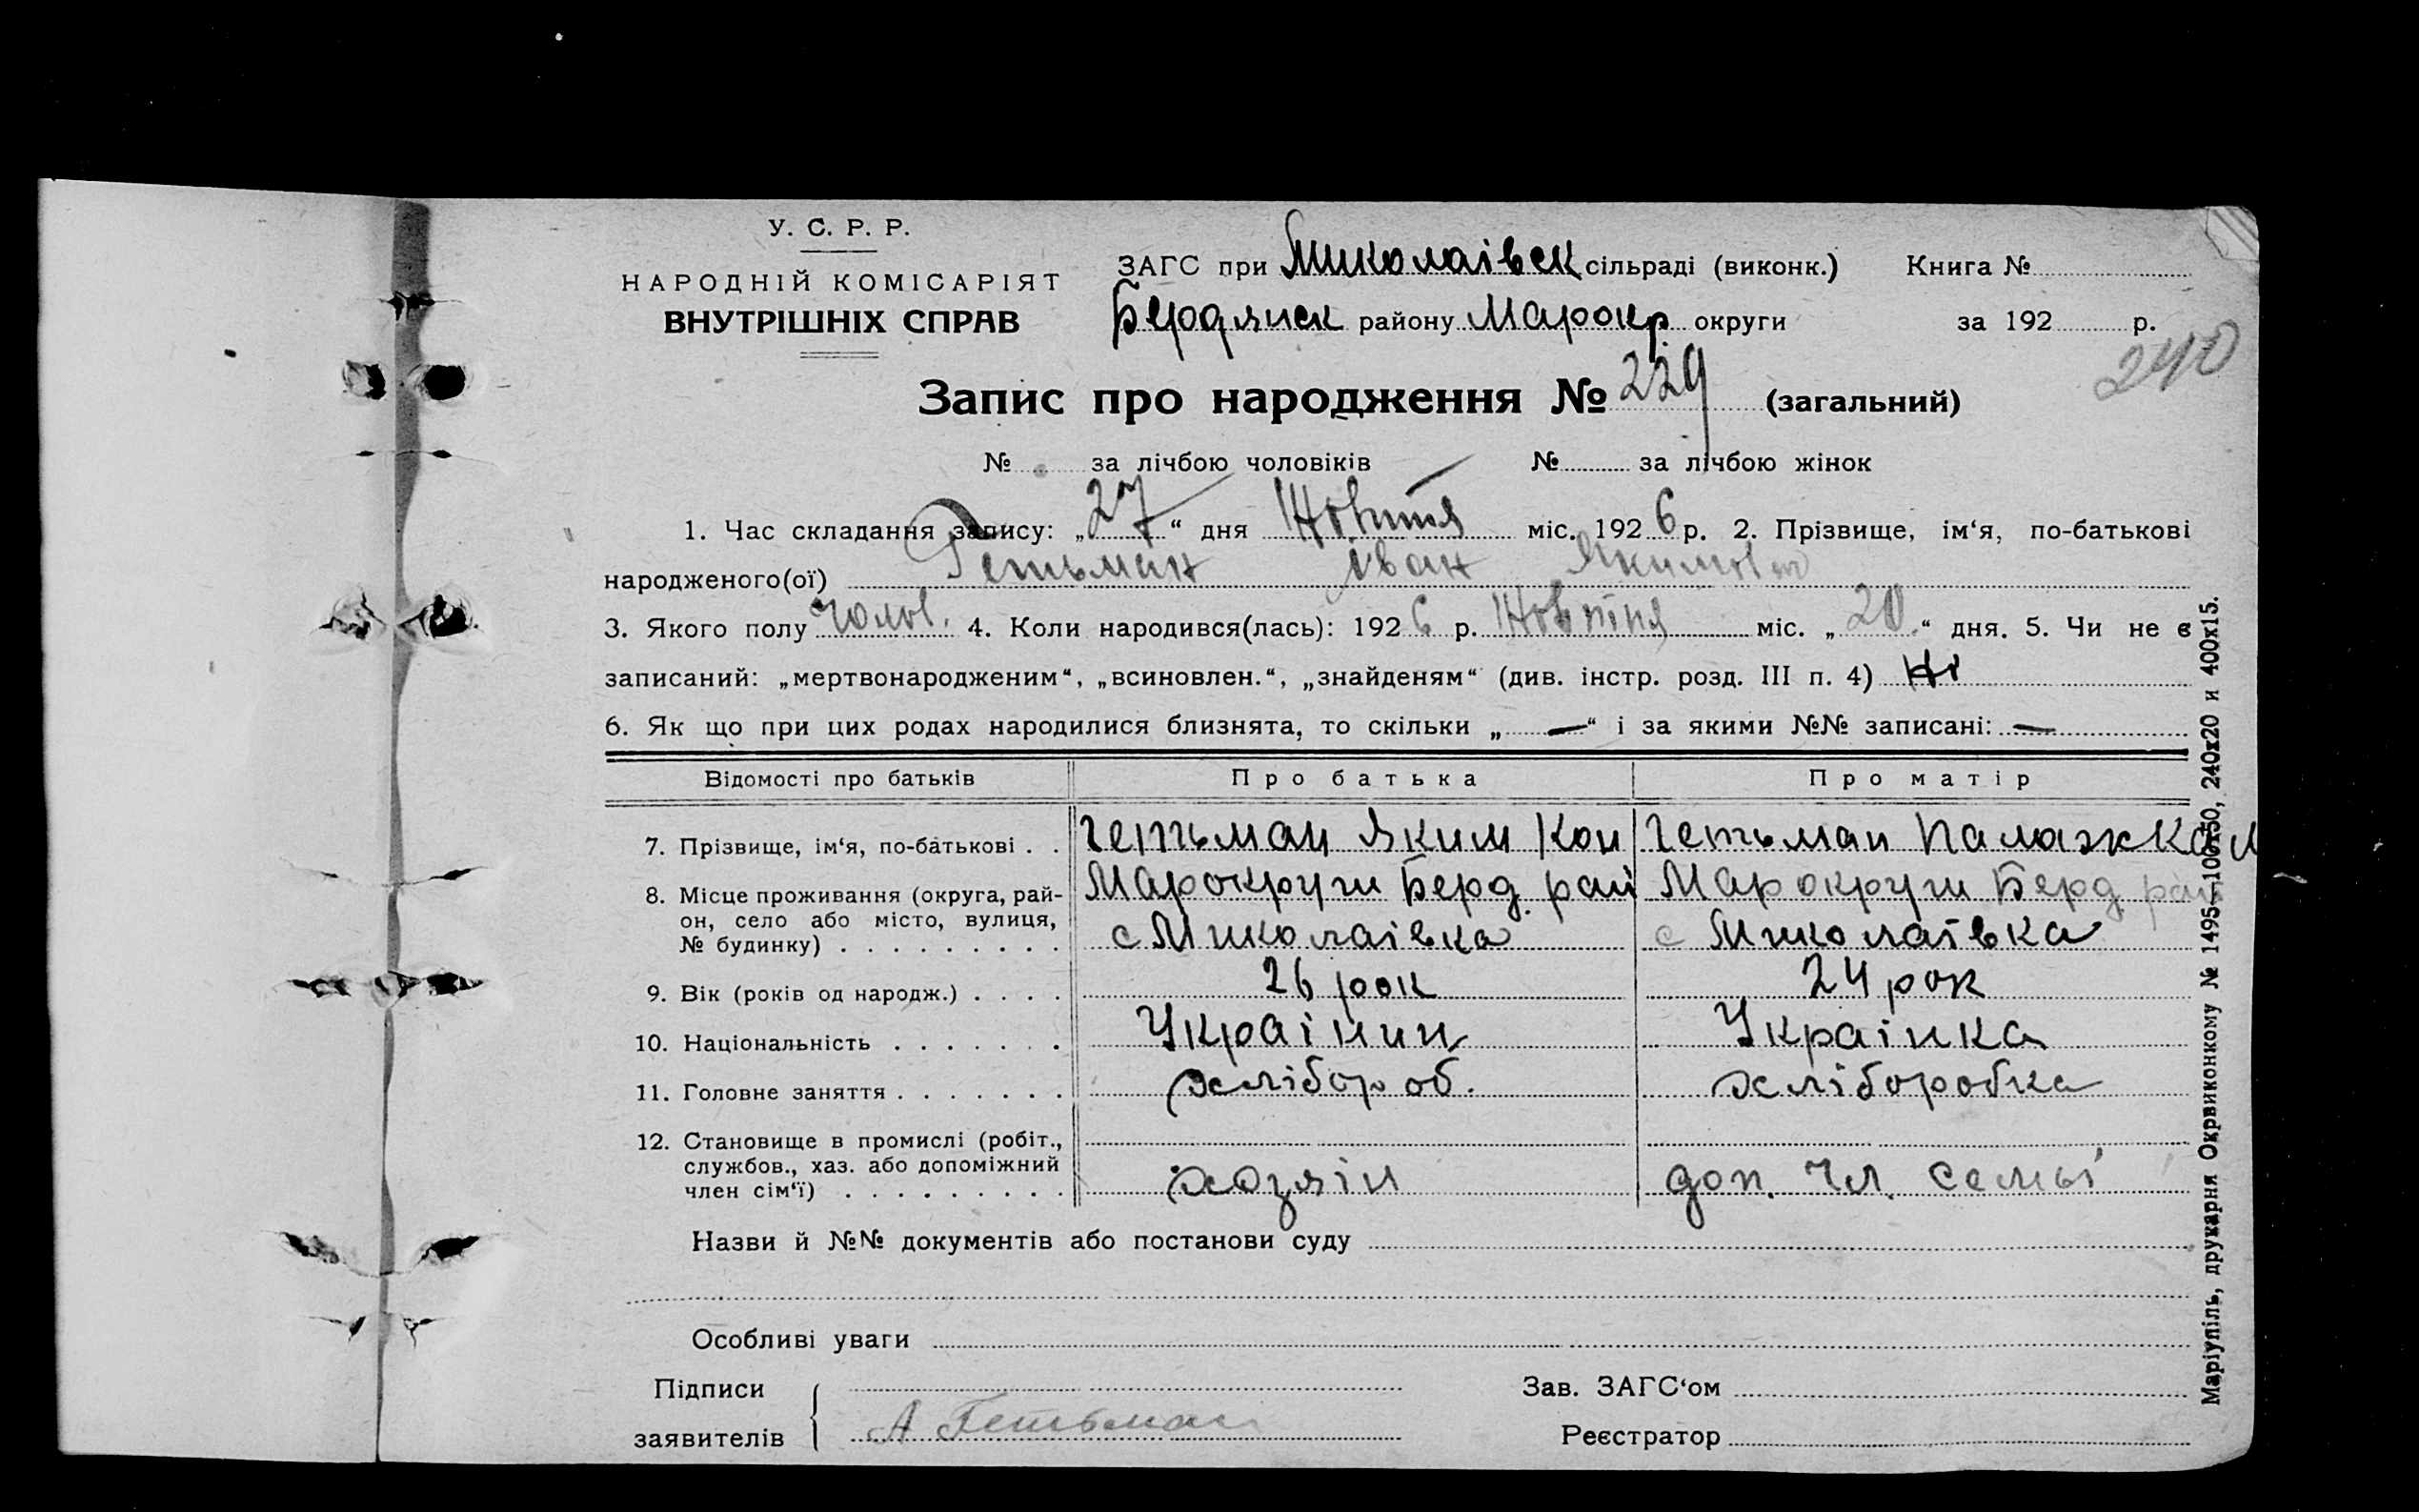 У. С. Р. Р.
НАРОДНІЙ КОМІСАРІЯТ
ВНУТРІШНІХ СПРАВ
ЗАГС при Миколаівск сільраді (виконк.) Книга №
Бердянск району Марокр. округи за 192 р.
240
Запис про народження № 229 (загальний)
№ за лічбою чоловіків № за лічбою жінок
1. Час складання запису: „27“ дня Жовтня міс. 1926 р. 2. Прізвище, ім‘я, по-батькові
народженого(ої) Гетьман Іван Якимов
3. Якого полу чолов. 4. Коли народився(лась): 1926 р. Жовтня міс. „20“ дня. 5. Чи не є
записаний: „мертвонародженим“, „всиновлен.“, „знайденям“ (див. інстр. розд. III п. 4) Ні
6. Як що при цих родах народилися близнята, то скільки „—“ і за якими №№ записані: —
Відомості про батьків Про батька Про матір
7. Прізвище, ім‘я, по-батькові . . Гетьман Яким Кон Гетьман Палажка
8. Місце проживання (округа, рай- Марокруги Берд. рай Марокруги Берд рай
он, село або місто, вулиця,
№ будинку) . . . . . . . . . с Миколаівка с Миколаівка
9. Вік (років од народж.) . . . . 26 рок 24 рок
10. Національність . . . . . . . Украінин Украінка
11. Головне заняття . . . . . . . хлібороб. хліборобка
12. Становище в промислі (робіт.,
службов., хаз. або допоміжний
член сім‘ї) . . . . . . . . . хозяін доп. чл. семьі
Назви й №№ документів або постанови суду
Особливі уваги
Підписи Зав. ЗАГС‘ом
заявителів А Гетьман Реєстратор
Маріупіль, друкарня Окрвиконкому № 1495—100х50, 240х20 и 400х15.